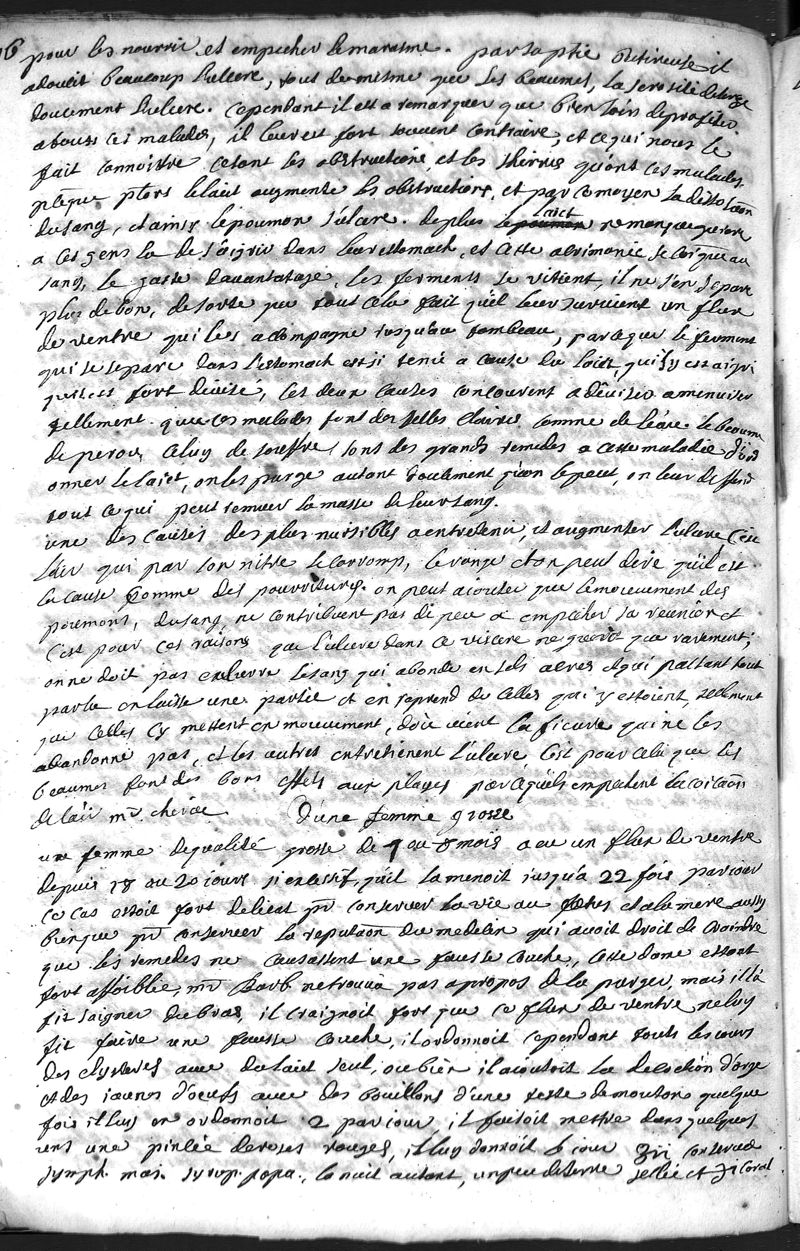 pour les nourrir et empecher le marasme. par sa ptie butireuse il
adoucit beaucoup l'ulcere, tout de mesme que les beaumes, la serosité deterge
doucement l'ulcere. Cependant il est a remarquer que bien loin de profiter
a tous ces malades, il leur est fort souvent contraire, et ce qui nous le
fait connoitre ce sont les obstructions et les skirres qu'ont ces malades
pceque pour lors le lait augmente les obstructions, et par ce moyen la dissoluon
du sang, et ainsi le poumon s'ulcere. de plus le laict ne manque guere
a ces gens la de s'aigrir dans leur estomach, et cette acrimonie se coique au
sang, le gaste davantage, les ferments se vitient, il ne s'en separe
plus de bon, de sorte que tout cela fait qu'il leur survient un flux
de ventre qui les acompagne jusqu'au tombeau, parceque le ferment
qui se separe dans l'estomach est si tenu a cause du laict, qui s'y est aigri
qui est fort divisé, ces deux causes concourent a diviser a menuiser
tellement que ces malades font des selles claires comme de l'eau. le beaume
de perou, celuy de souffre, sont des grands remedes a cette maladie d'ord
onner le laict, on les purge autant doucement qu'on le peut, on leur deffend
tout ce qui peut remuer la masse de leur sang.
une des causes des plus nuisibles a entretenir, et augmenter l'ulcere c'est
l'air qui par son nitre le corromp, le ronge et on peut dire qu'il est
la cause comme des pourritures. on peut ajouter que le mouvement des
poumons, du sang, ne contribuent pas de peu a empecher sa reunion et
c'est pour ces raisons que l'ulcere dans ce viscere ne guerit que rarement;
on ne doit pas exclurre le sang qui abonde en sels acres et qui passant tout
par la en laisse une partie et en reprend de celles qui y estoient, tellement
que celles cy mettent en mouvement, d'où vient la fievre qui ne les
abandonne pas, et les autres entretiennent l'ulcere, c'est pour cela que les
beaumes font des bons effets aux playes parcequ'ils empechent la coicaon
de l'air mr cheirac d'une femme grosse
une femme de qualité grosse de 7 ou 8 mois a eu un flux de ventre
depuis 18 ou 20 jours si excessif, qu'il la menoit jusqu'a 22 fois par jour
ce cas estoit fort delicat pr conserver la vie au foetus et a la mere aussy
bien que pr conserver la reputaon du medecin qui avoit droit de craindre
que les remedes ne causassent une fausse couche, cette dame estant
fort affoiblie, mr Barb ne trouva pas a propos de la purger, mais il la
fit saigner du bras, il craignoit fort que ce flux de ventre ne luy
fit faire une fausse couche, il ordonnoit cependant touts les jours
des clysteres avec du laict seul, ou bien il ajoutoit la decoction d'orge
et des jaunes d'oeufs avec des bouillons d'une teste de mouton, quelque
fois il luy en ordonnoit 2 par jour, il faisoit mettre dans quelques
uns une pincée de roses rouges, il luy donnoit le jour ʒii conserve
symph. mai. syrup. papa., la nuit autant, un peu de terre scellée et ʒi coral